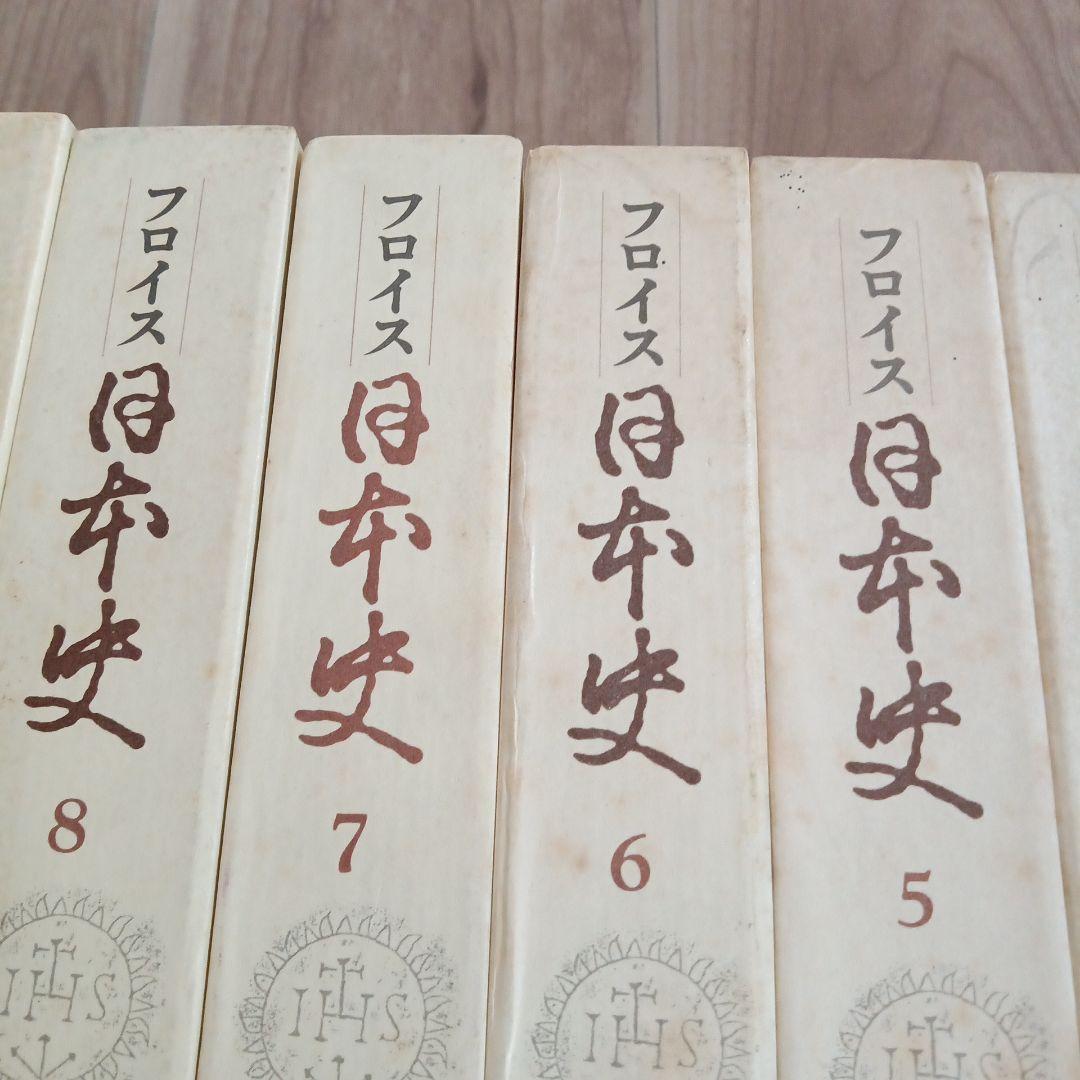 フロイス
日本史
8
IHS
フロイス
日本史
7
IHS
フロイス
日本史
6
IHS
フロイス
日本史
5
IHS